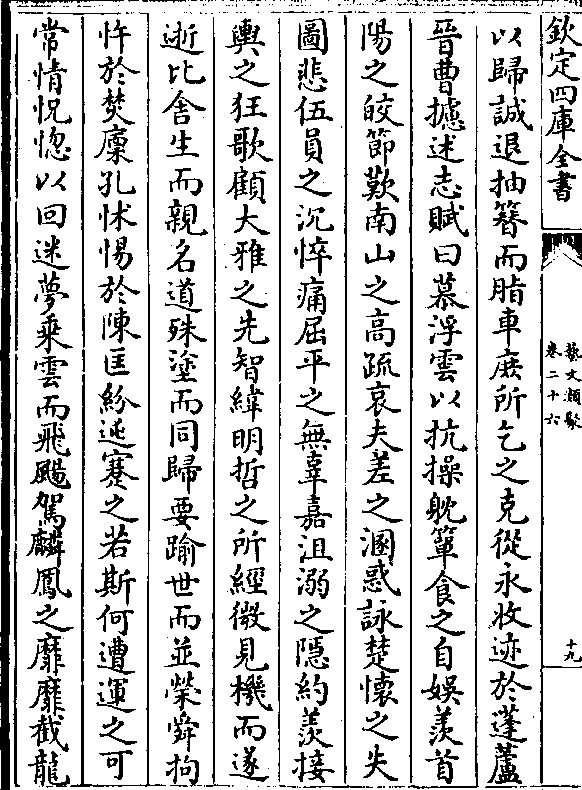 欽定四庫全書
藝文類聚
卷二十六
十九
以歸誠退抽簪而脂車庶所乞之克從永收迹於蓬蘆
晉曹攄述志賦曰慕浮雲以抗操躭簞食之自娛羨首
陽之皎節歎南山之高疏哀夫差之溷惑詠楚懷之失
圖悲伍員之沉悴痛屈平之無辜嘉沮溺之隠約羨接
輿之狂歌顧大雅之先智緯明哲之所經微見機而遂
逝比舍生而親名道殊塗而同歸要踰世而並榮舜拘
忤於焚廩孔怵惕於陳匡紛延蹇之若斯何遭運之可
常情怳惚以回迷夢乘雲而飛颺駕麟鳳之靡靡截龍